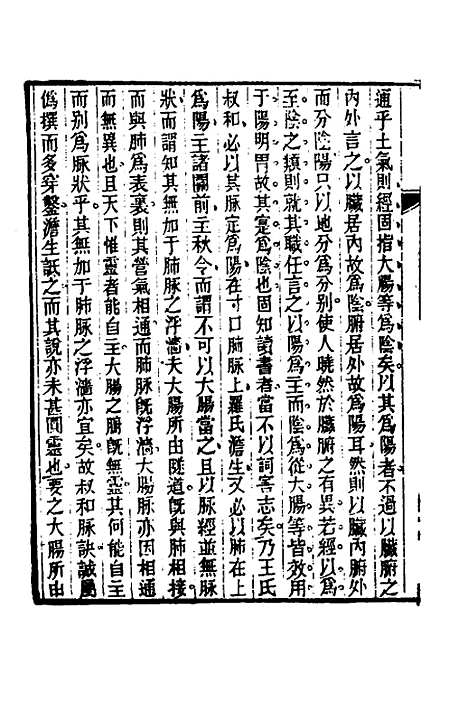 通乎土氣則經固指大腸等爲陰矣以其爲陽者不過以臟腑之
內外言之以臟居內故爲陰腑居外故爲陽耳然則以臟內腑外
而分陰陽只以地分爲分別使人曉然於臟腑之有異若經以爲
至陰之類則就其職任言之以陽爲主而陰爲從大腸等皆效用
于陽明胃故其寔爲陰也固知讀書者當不以詞害志矣乃王氏
叔和必以其脈定爲陽在寸口肺脈上羅氏澹生又必以肺在上
爲陽主諸關前主秋令而謂不可以大腸當之且以脈經並無脈
狀而謂知其無加于肺脈之浮濇夫大腸所由隧道旣與肺相接
而與肺爲表裏則其營氣相通而肺脈旣浮濇大腸脈亦因相通
而無異也且天下惟靈者能自主大腸之腑旣無靈其何能自主
而别爲脈狀乎其無加于肺脈之浮濇亦宜矣故叔和脈訣誠屬
僞撰而多穿鑿澹生詆之而其說亦未甚圓靈也要之大腸所由